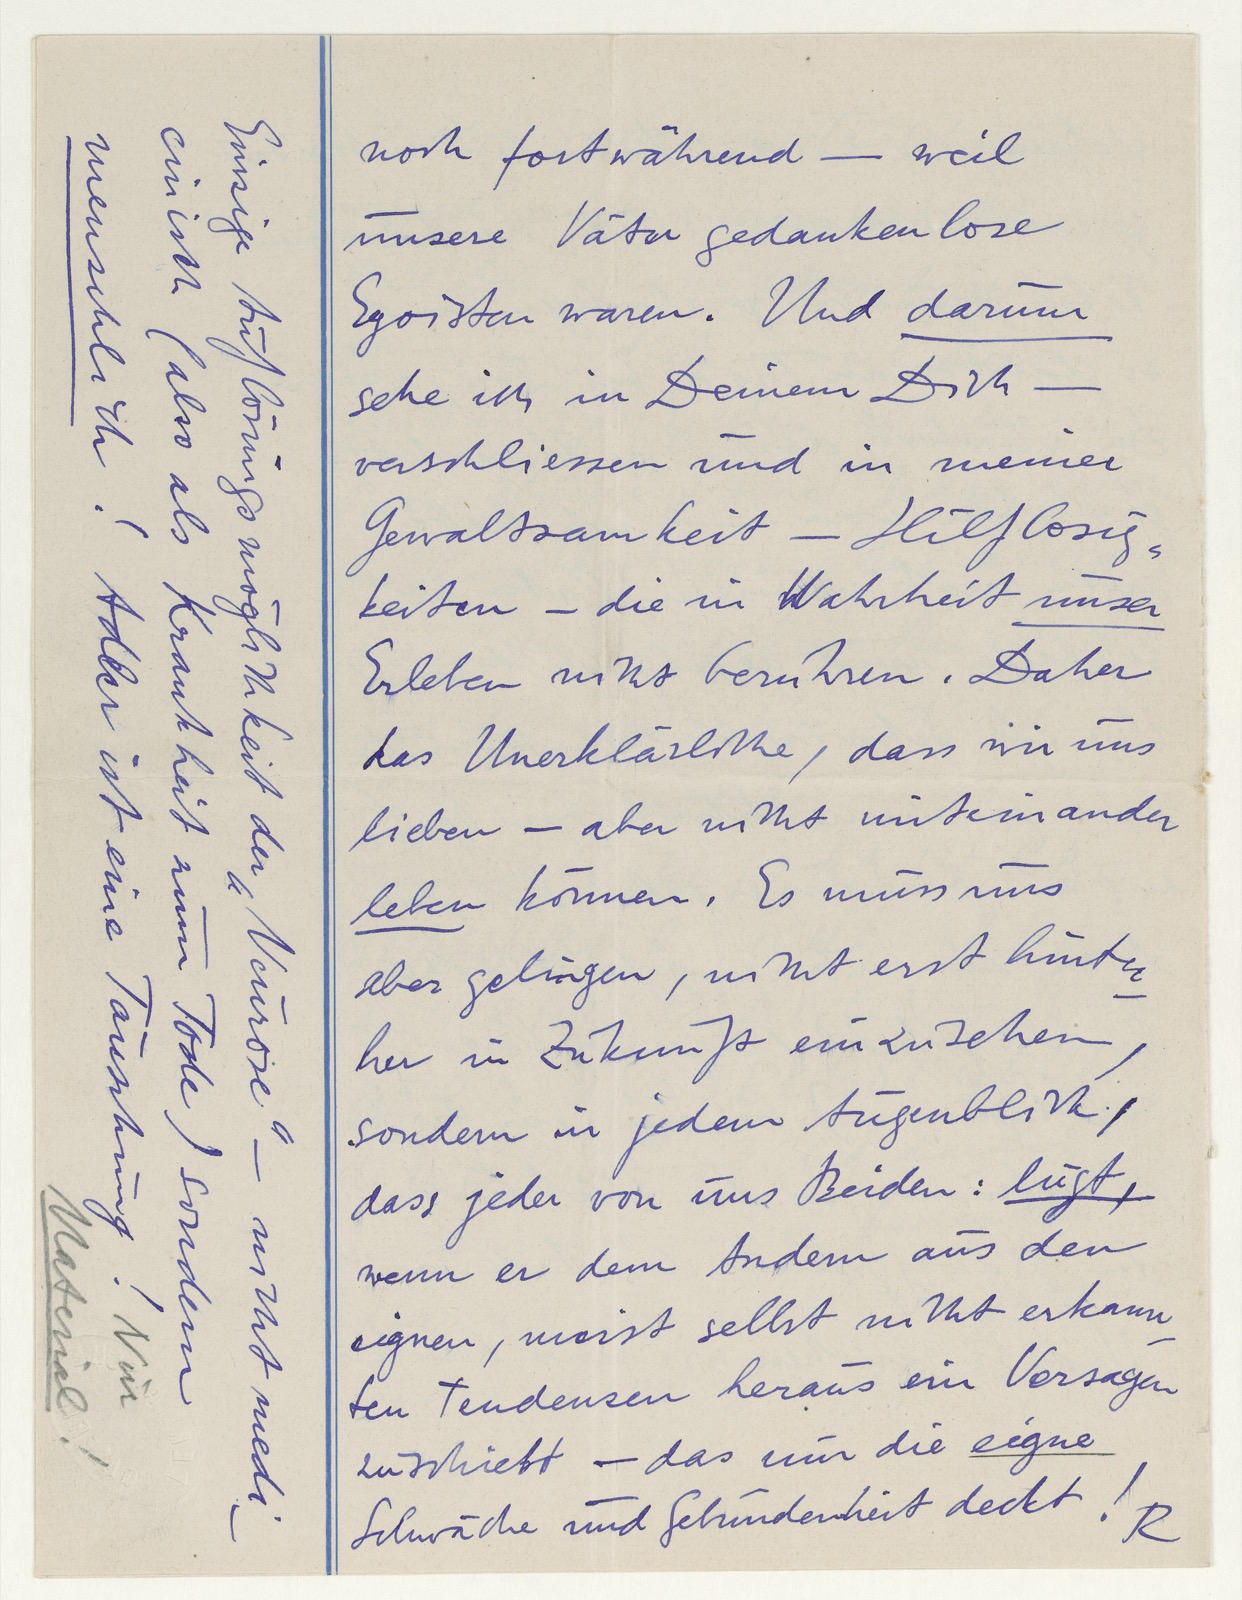 noch fortwährend — weil
unsere Väter gedankenlose
Egoisten waren. Und darum
sehe ich in Deinem Dich —
verschliessen und in meiner
Gewaltsamkeit — Hilflosig-
keiten — die in Wahrheit unser
Erleben nicht berühren. Daher
das Unerklärliche, dass wir uns
lieben — aber nicht miteinander
leben können. Es muss uns
aber gelingen, nicht erst hinter-
her in Zukunft einzusehen,
sondern in jedem Augenblick,
dass jeder von uns Beiden: lügt,
wenn er dem Andern aus den
eignen, meist selbst nicht erkann-
ten Tendenzen heraus ein Versagen
zuschiebt — das nur die eigne
Schwäche und Gebundenheit deckt! R
Einzige Auflösungsmöglichkeit der „Neurose“ — nicht medi-
cinisch (also als Krankheit zum Tode) sondern
menschlich! Adler ist eine Täuschung! Nur
Material!